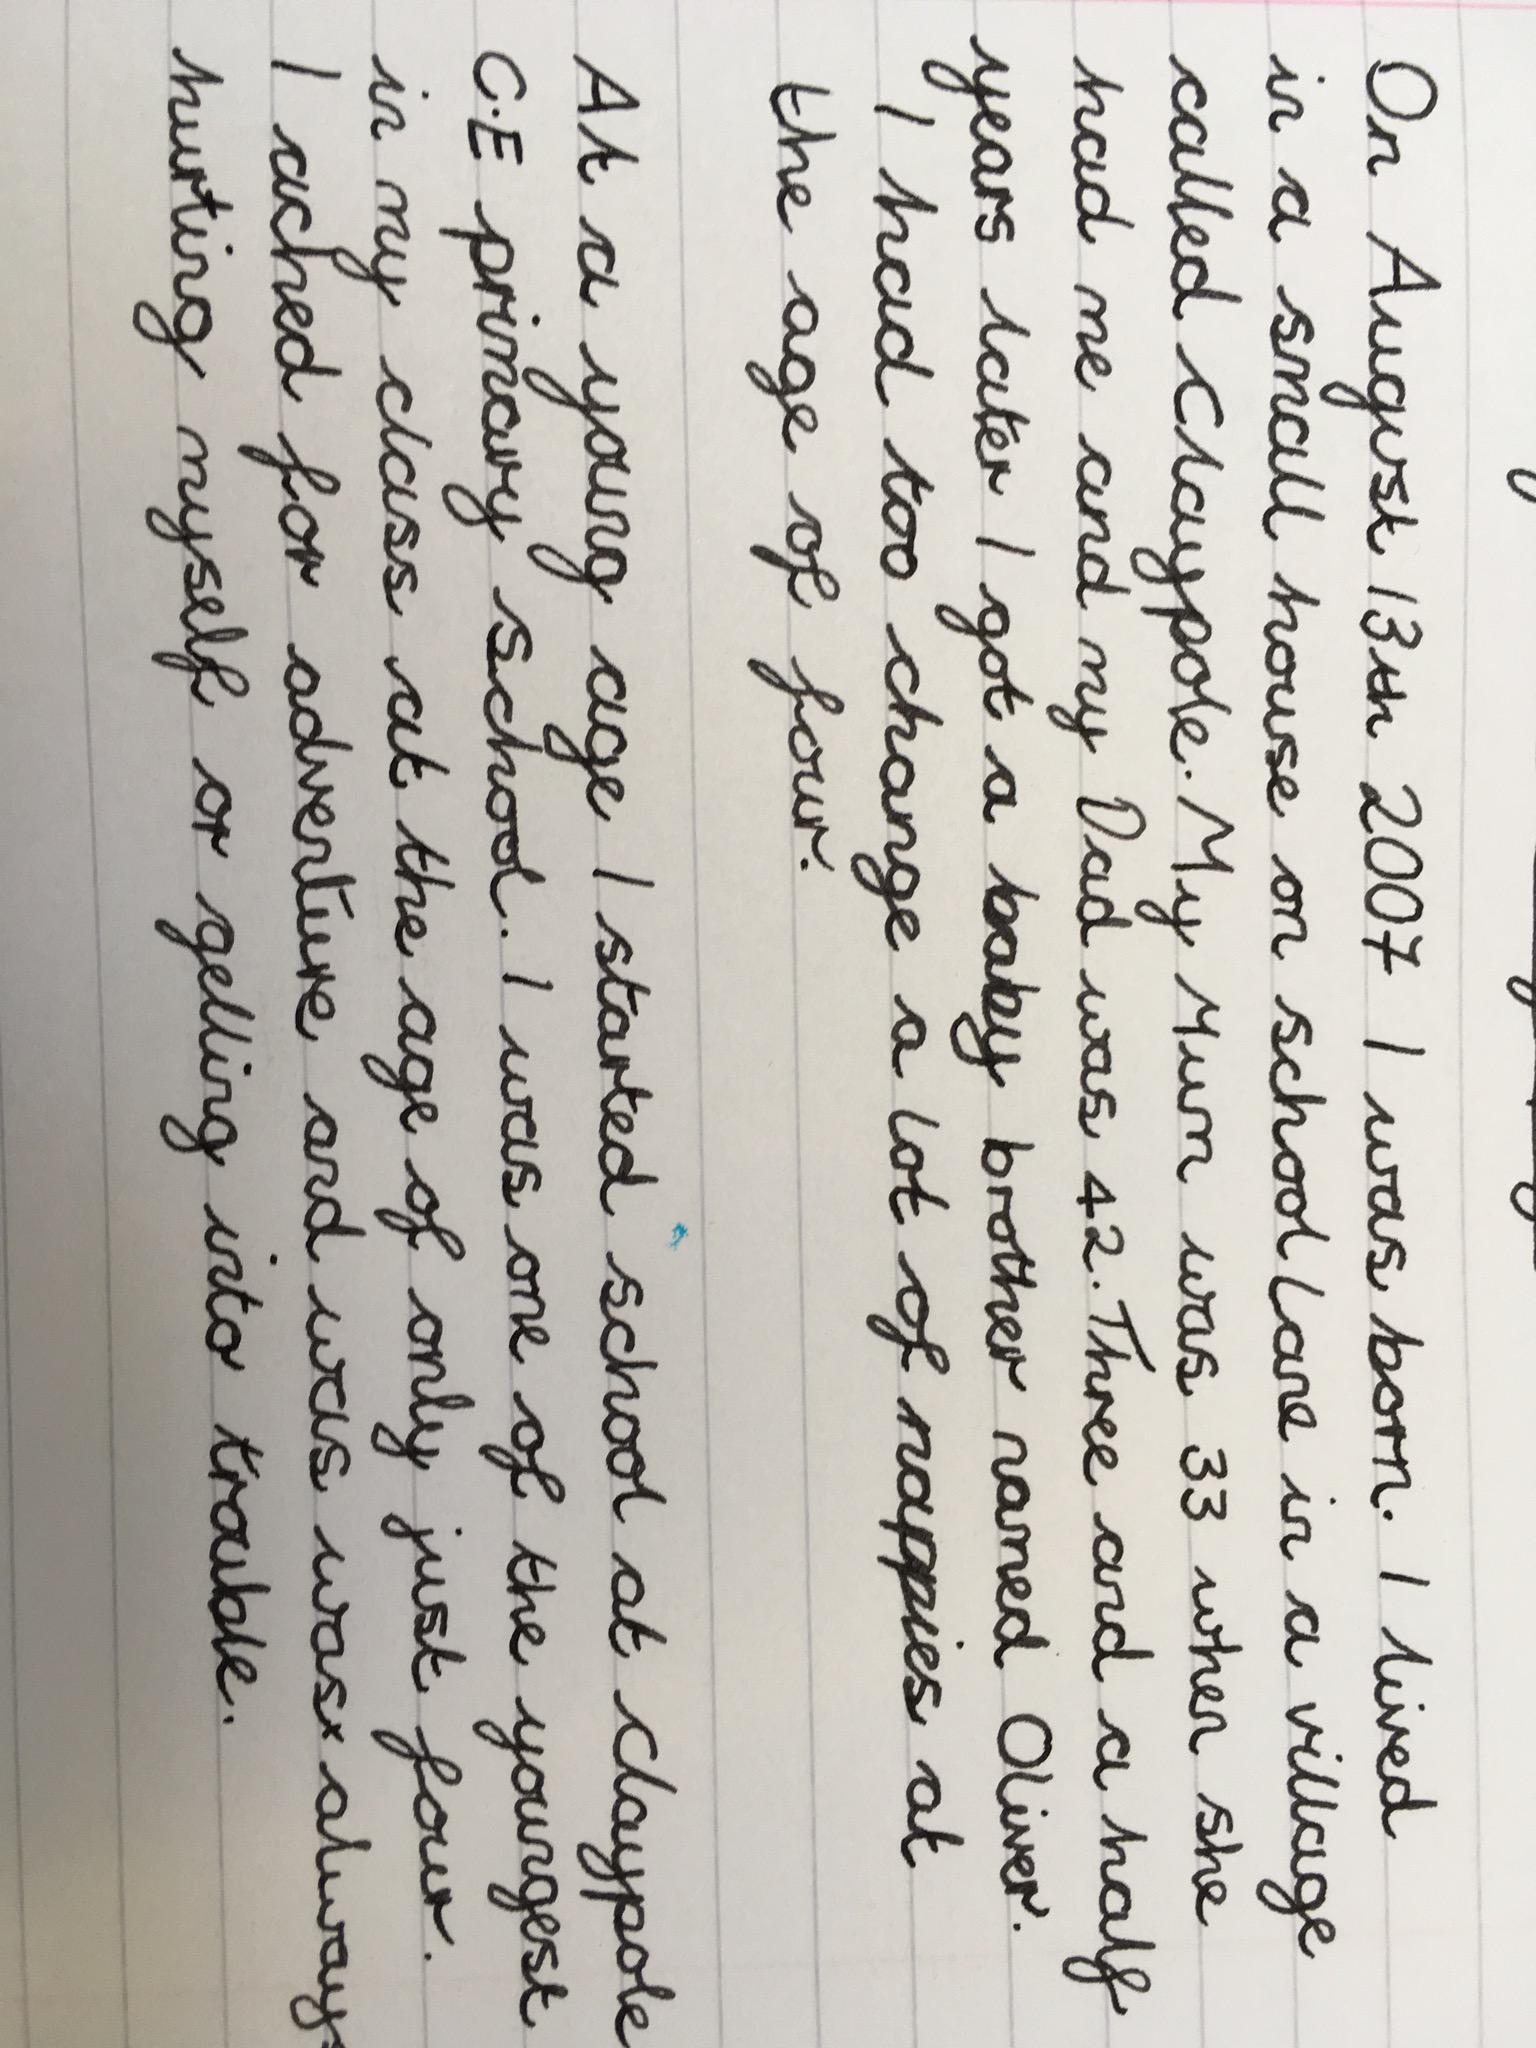 On August 13th 2007 I was born. I lived
in a small house on school Lane in a village
called Claypole. My Mum was 33 when she
had me and my Dad was 42. Three and a half
years later I got a baby brother named Oliver.
I had too change a lot of nappies at
the age of four.
At a young age I started school at claypole
C.E primary school. I was one of the youngest
in my class at the age of only just four.
I ached for adventure and was was always
hurting myself or getting into trouble.